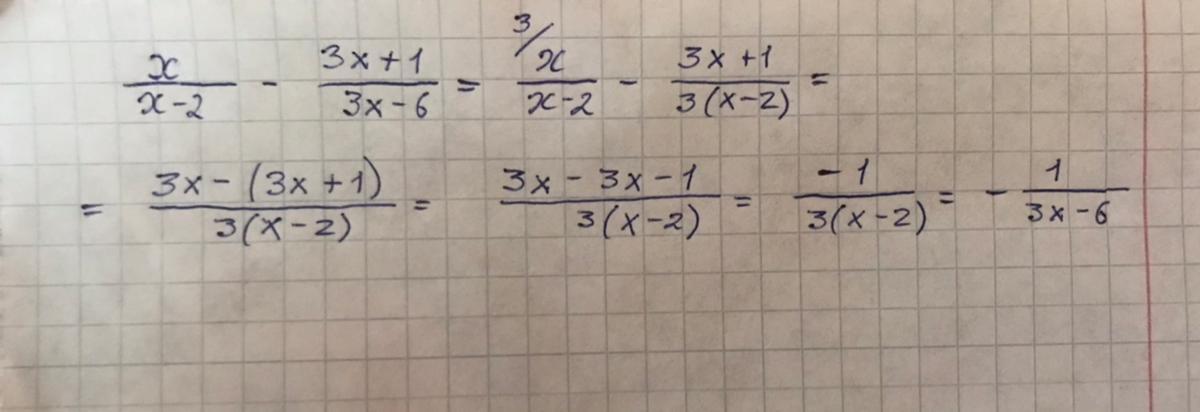 x/(x-2) - (3x+1)/(3x-6) = ³/ x/(x-2) - (3x+1)/(3(x-2)) =
= (3x-(3x+1))/(3(x-2)) = (3x-3x-1)/(3(x-2)) = -1/(3(x-2)) = - 1/(3x-6)